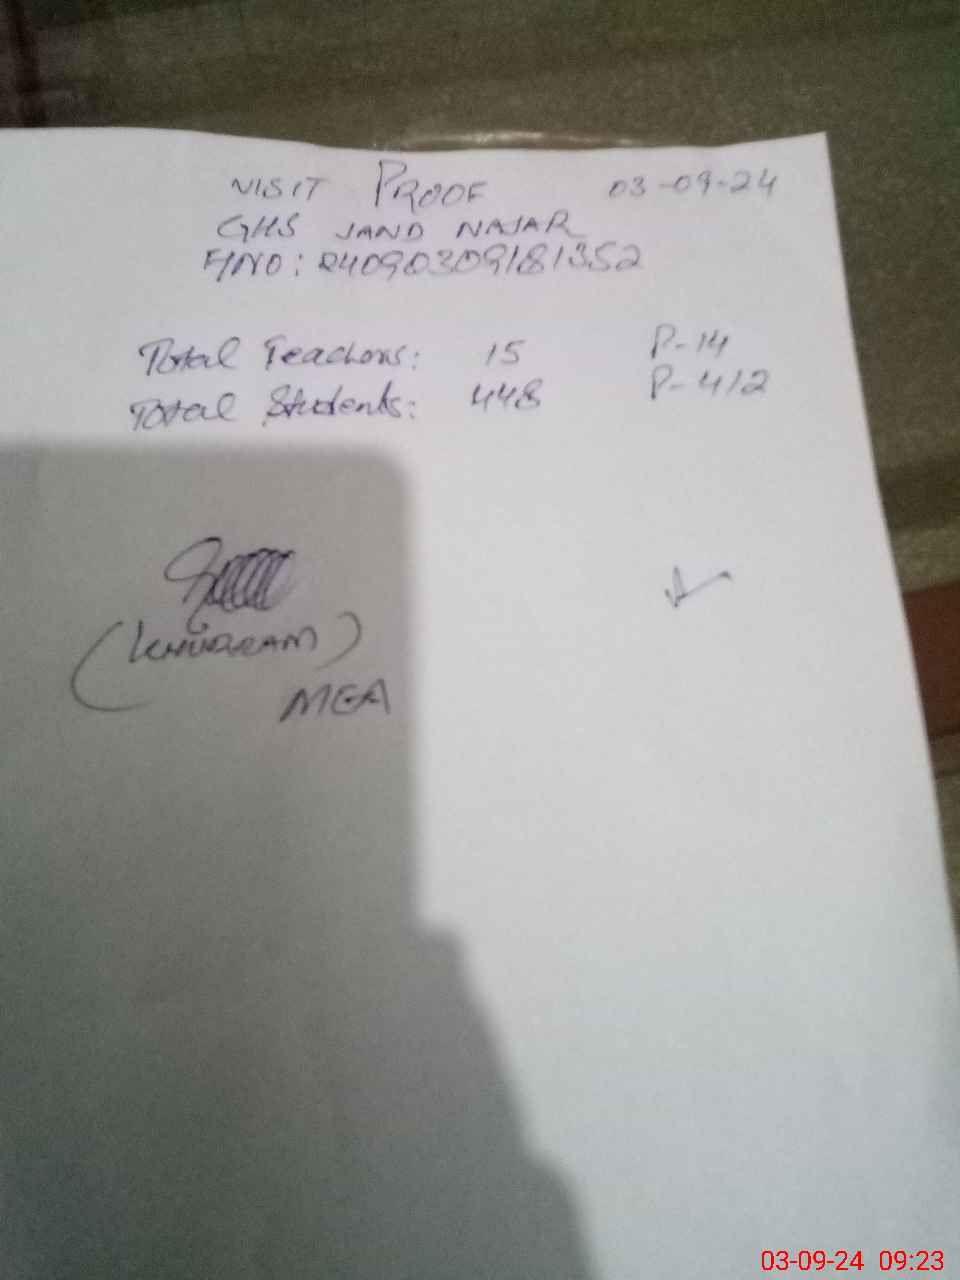 VISIT PROOF 03-09-24
GHS JAND NAJAR
F/NO: 24090309181352
Total Teachers: 15 P-14
Total Students: 448 P-412
(KHURRAM)
MEA
03-09-24 09:23